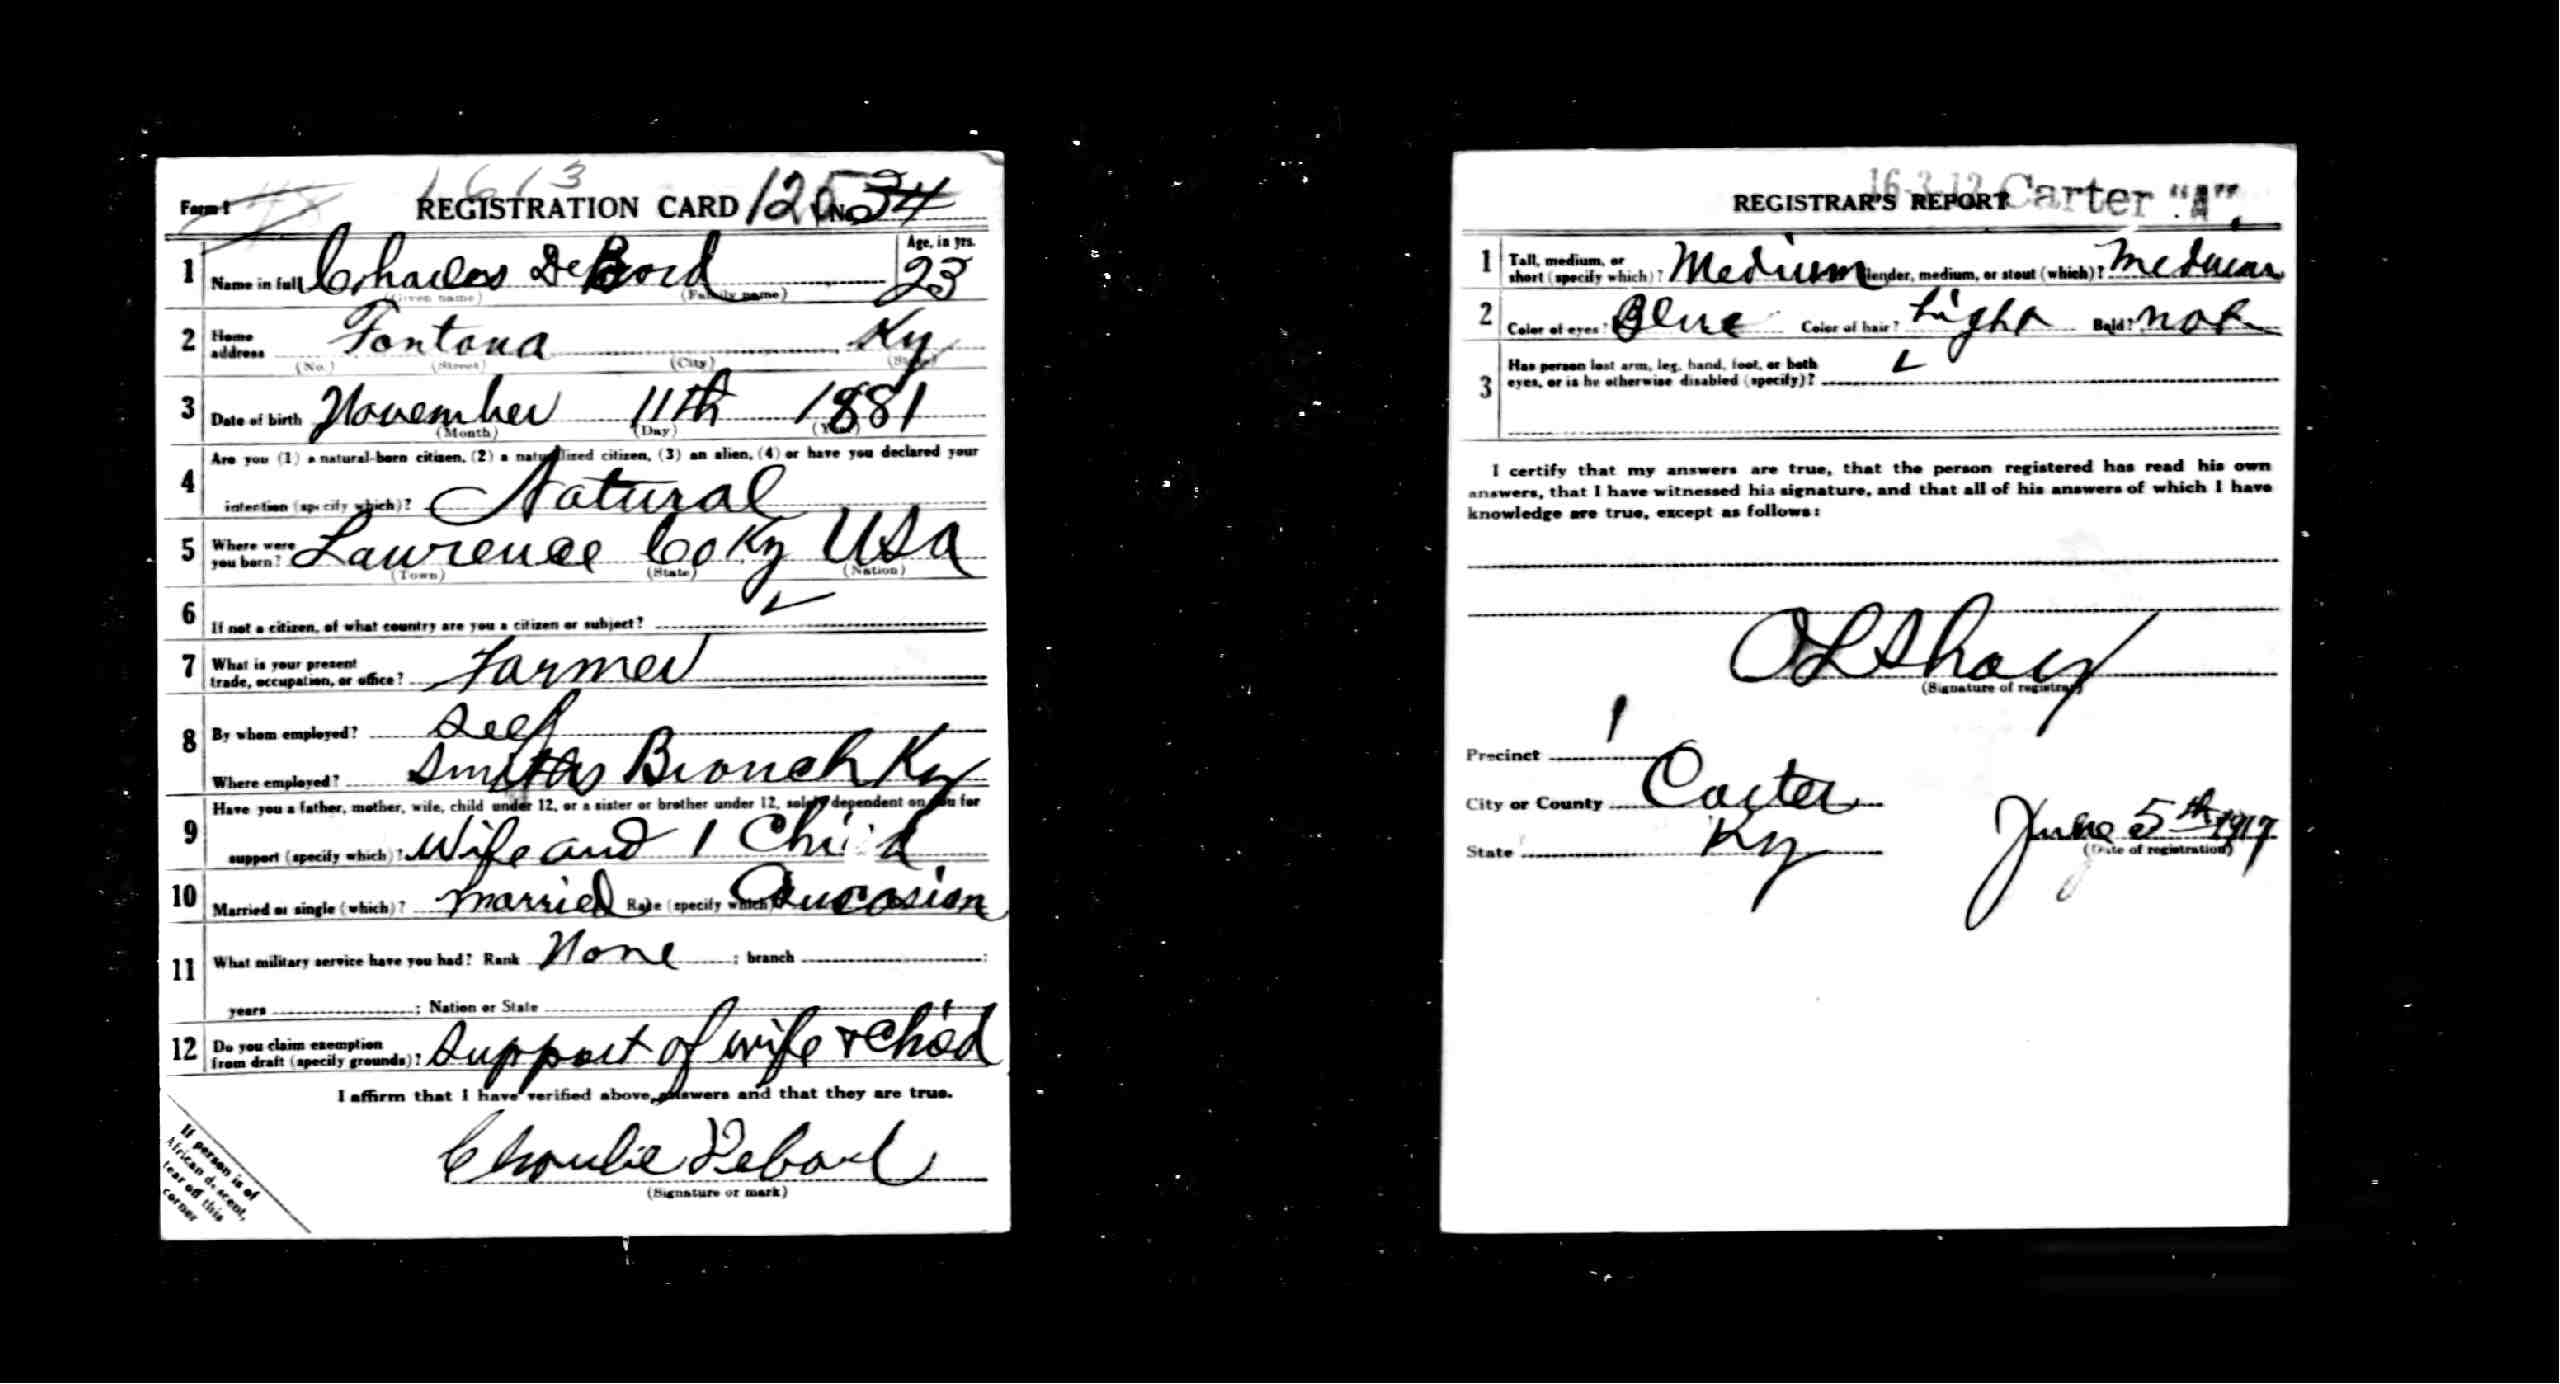 1613
Form 1 REGISTRATION CARD 125 No. 34
1 Name in full Charles DeBord Age, in yrs. 23
(Given name) (Family name)
2 Home address Fontana Ky
(No.) (Street) (City) (State)
3 Date of birth November 11th 1881
(Month) (Day) (Year)
4 Are you (1) a natural-born citizen, (2) a naturalized citizen, (3) an alien, (4) or have you declared your
intention (specify which)? Natural
5 Where were you born? Lawrence Co Ky USA
(Town) (State) (Nation)
6 If not a citizen, of what country are you a citizen or subject?
7 What is your present trade, occupation, or office? Farmer
8 By whom employed? Self
Where employed? Smiths Branch Ky
9 Have you a father, mother, wife, child under 12, or a sister or brother under 12, solely dependent on you for
support (specify which)? Wife and 1 Child
10 Married or single (which)? Married Race (specify which)? Caucasian
11 What military service have you had? Rank None ; branch ;
years ; Nation or State
12 Do you claim exemption from draft (specify grounds)? Support of wife & Child
I affirm that I have verified above answers and that they are true.
Charlie Debord
(Signature or mark)
If person is of
African descent,
tear off this
corner
REGISTRAR'S REPORT 16-3-12 Carter "A".
1 Tall, medium, or short (specify which)? Medium Slender, medium, or stout (which)? Medium
2 Color of eyes? Blue Color of hair? Light Bald? not
3 Has person lost arm, leg, hand, foot, or both
eyes, or is he otherwise disabled (specify)?
I certify that my answers are true, that the person registered has read his own
answers, that I have witnessed his signature, and that all of his answers of which I have
knowledge are true, except as follows:
(Signature of registrar)
Precinct 1
City or County Carter
State Ky June 5th 1917
(Date of registration)